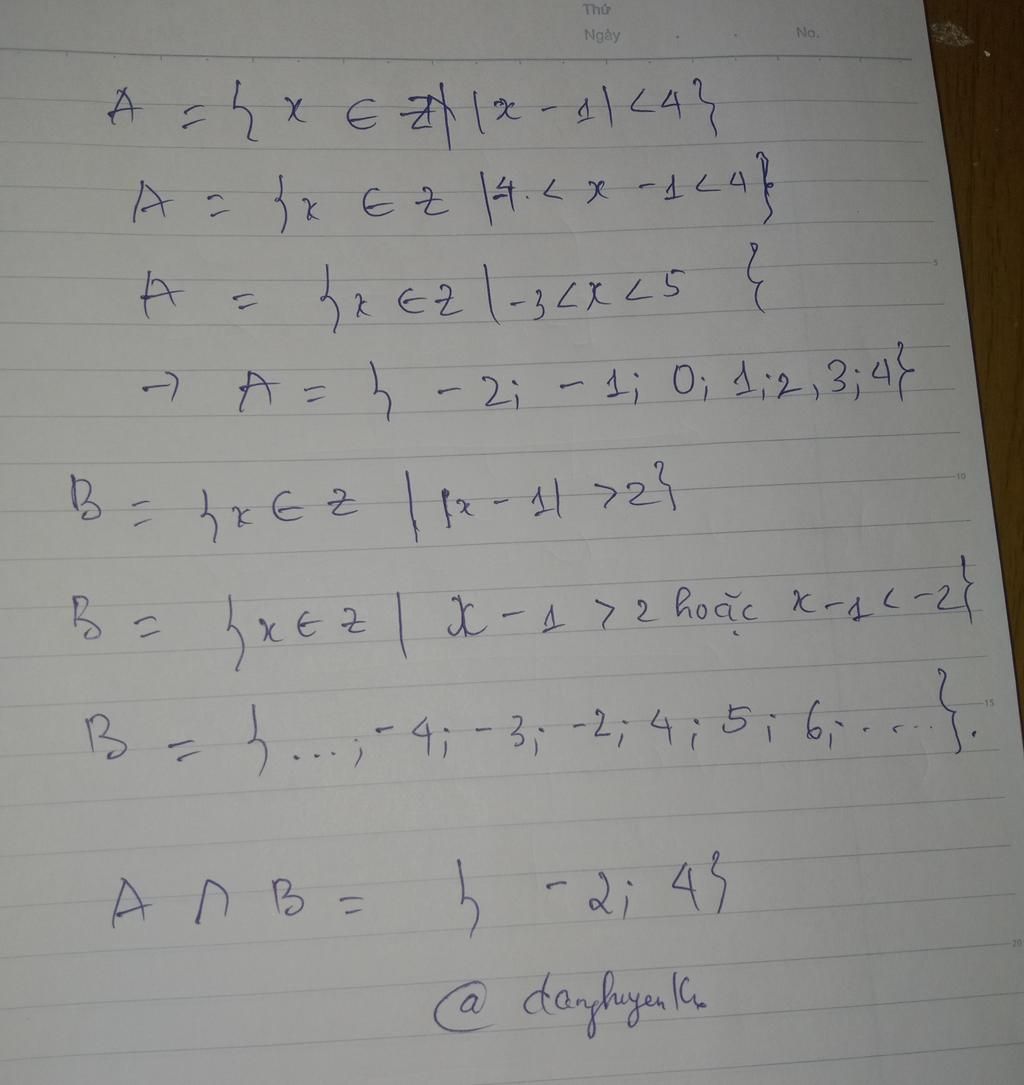 Thứ
Ngày . . No.
A = { x ∈ Z | |x - 1| < 4}
A = {x ∈ Z |4. < x - 1 < 4}
5
A = {x ∈ Z | -3 < x < 5 {
→ A = { - 2; - 1; 0; 1; 2, 3; 4}
10
B = {x ∈ Z | |x - 1| > 2}
B = {x ∈ Z | x - 1 > 2 hoặc x - 1 < -2}
15
B = { ...; - 4; - 3; -2; 4; 5; 6; .....}.
A ∩ B = { - 2; 4}
20